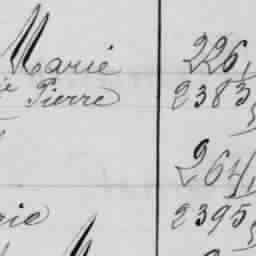 Marie 226,
ie Pierre 2383
264,
rie 2395